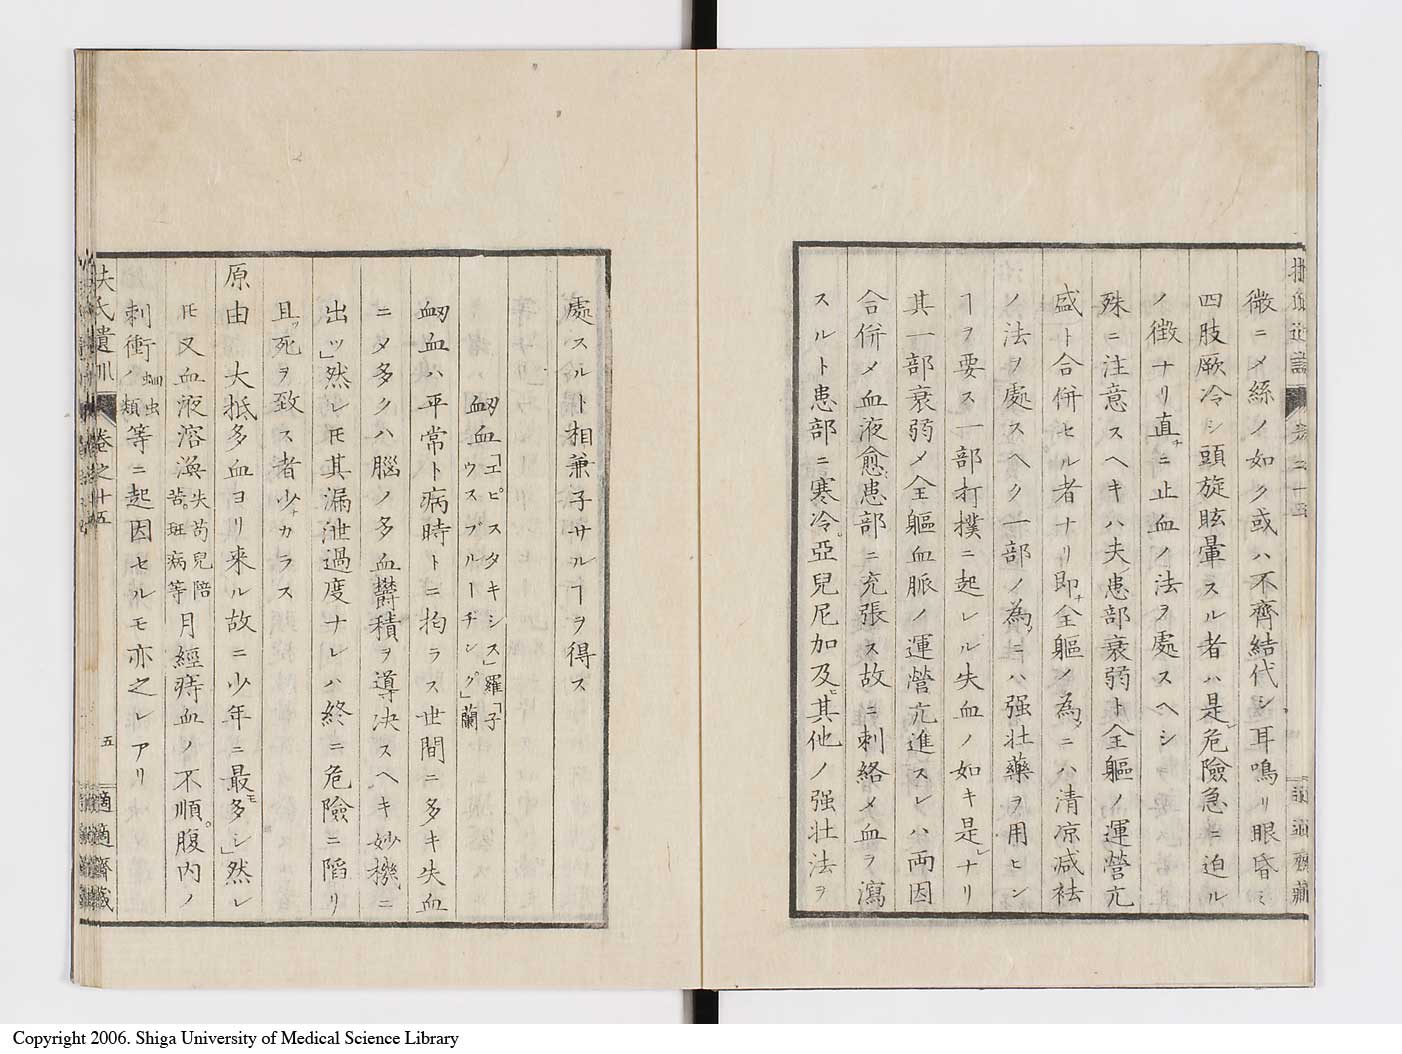 微ニメ絲ノ如ク或ハ不齊結代シ耳鳴リ眼昏ミ
四肢厥冷シ頭旋眩暈スル者ハ是レ危險急ニ迫ル
ノ徴ナリ直チニ止血ノ法ヲ處スヘシ
殊ニ注意スヘキハ夫患部衰弱ト全軀ノ運營亢
盛ト合併セル者ナリ即チ全軀ノ為メニハ清凉减祛
ノ法ヲ處スヘク一部ノ為メニハ强壯藥ヲ用ヒン
ヿヲ要ス一部打撲ニ起レル失血ノ如キ是レナリ
其一部衰弱メ全軀血脈ノ運營亢進スレハ兩因
合併メ血液愈患部ニ充張ス故ニ刺絡メ血ヲ瀉
スルト患部ニ寒冷。亞兒尼加及ヒ其他ノ强壯法ヲ
處スルト相兼子サルヿヲ得ス
衂血「エピスタキシス」羅「子
ウスブルーヂング」蘭
衂血ハ平常ト病時トニ拘ラス世間ニ多キ失血
ニメ多クハ腦ノ多血鬱積ヲ導决スヘキ妙機ニ
出ツ」然レモ其漏泄過度ナレハ終ニ危險ニ陷リ
且ツ死ヲ致ス者少ナカラス
原由 大抵多血ヨリ来ル故ニ少年ニ最モ多シ」然レ
㪽又血液溶渙失苟兒陪苦。斑病等月經痔血ノ不順。腹内ノ
刺衝蚘虫ノ類等ニ起因セルモ亦之レアリ
扶氏遺訓 卷之十五 五 適適齋藏